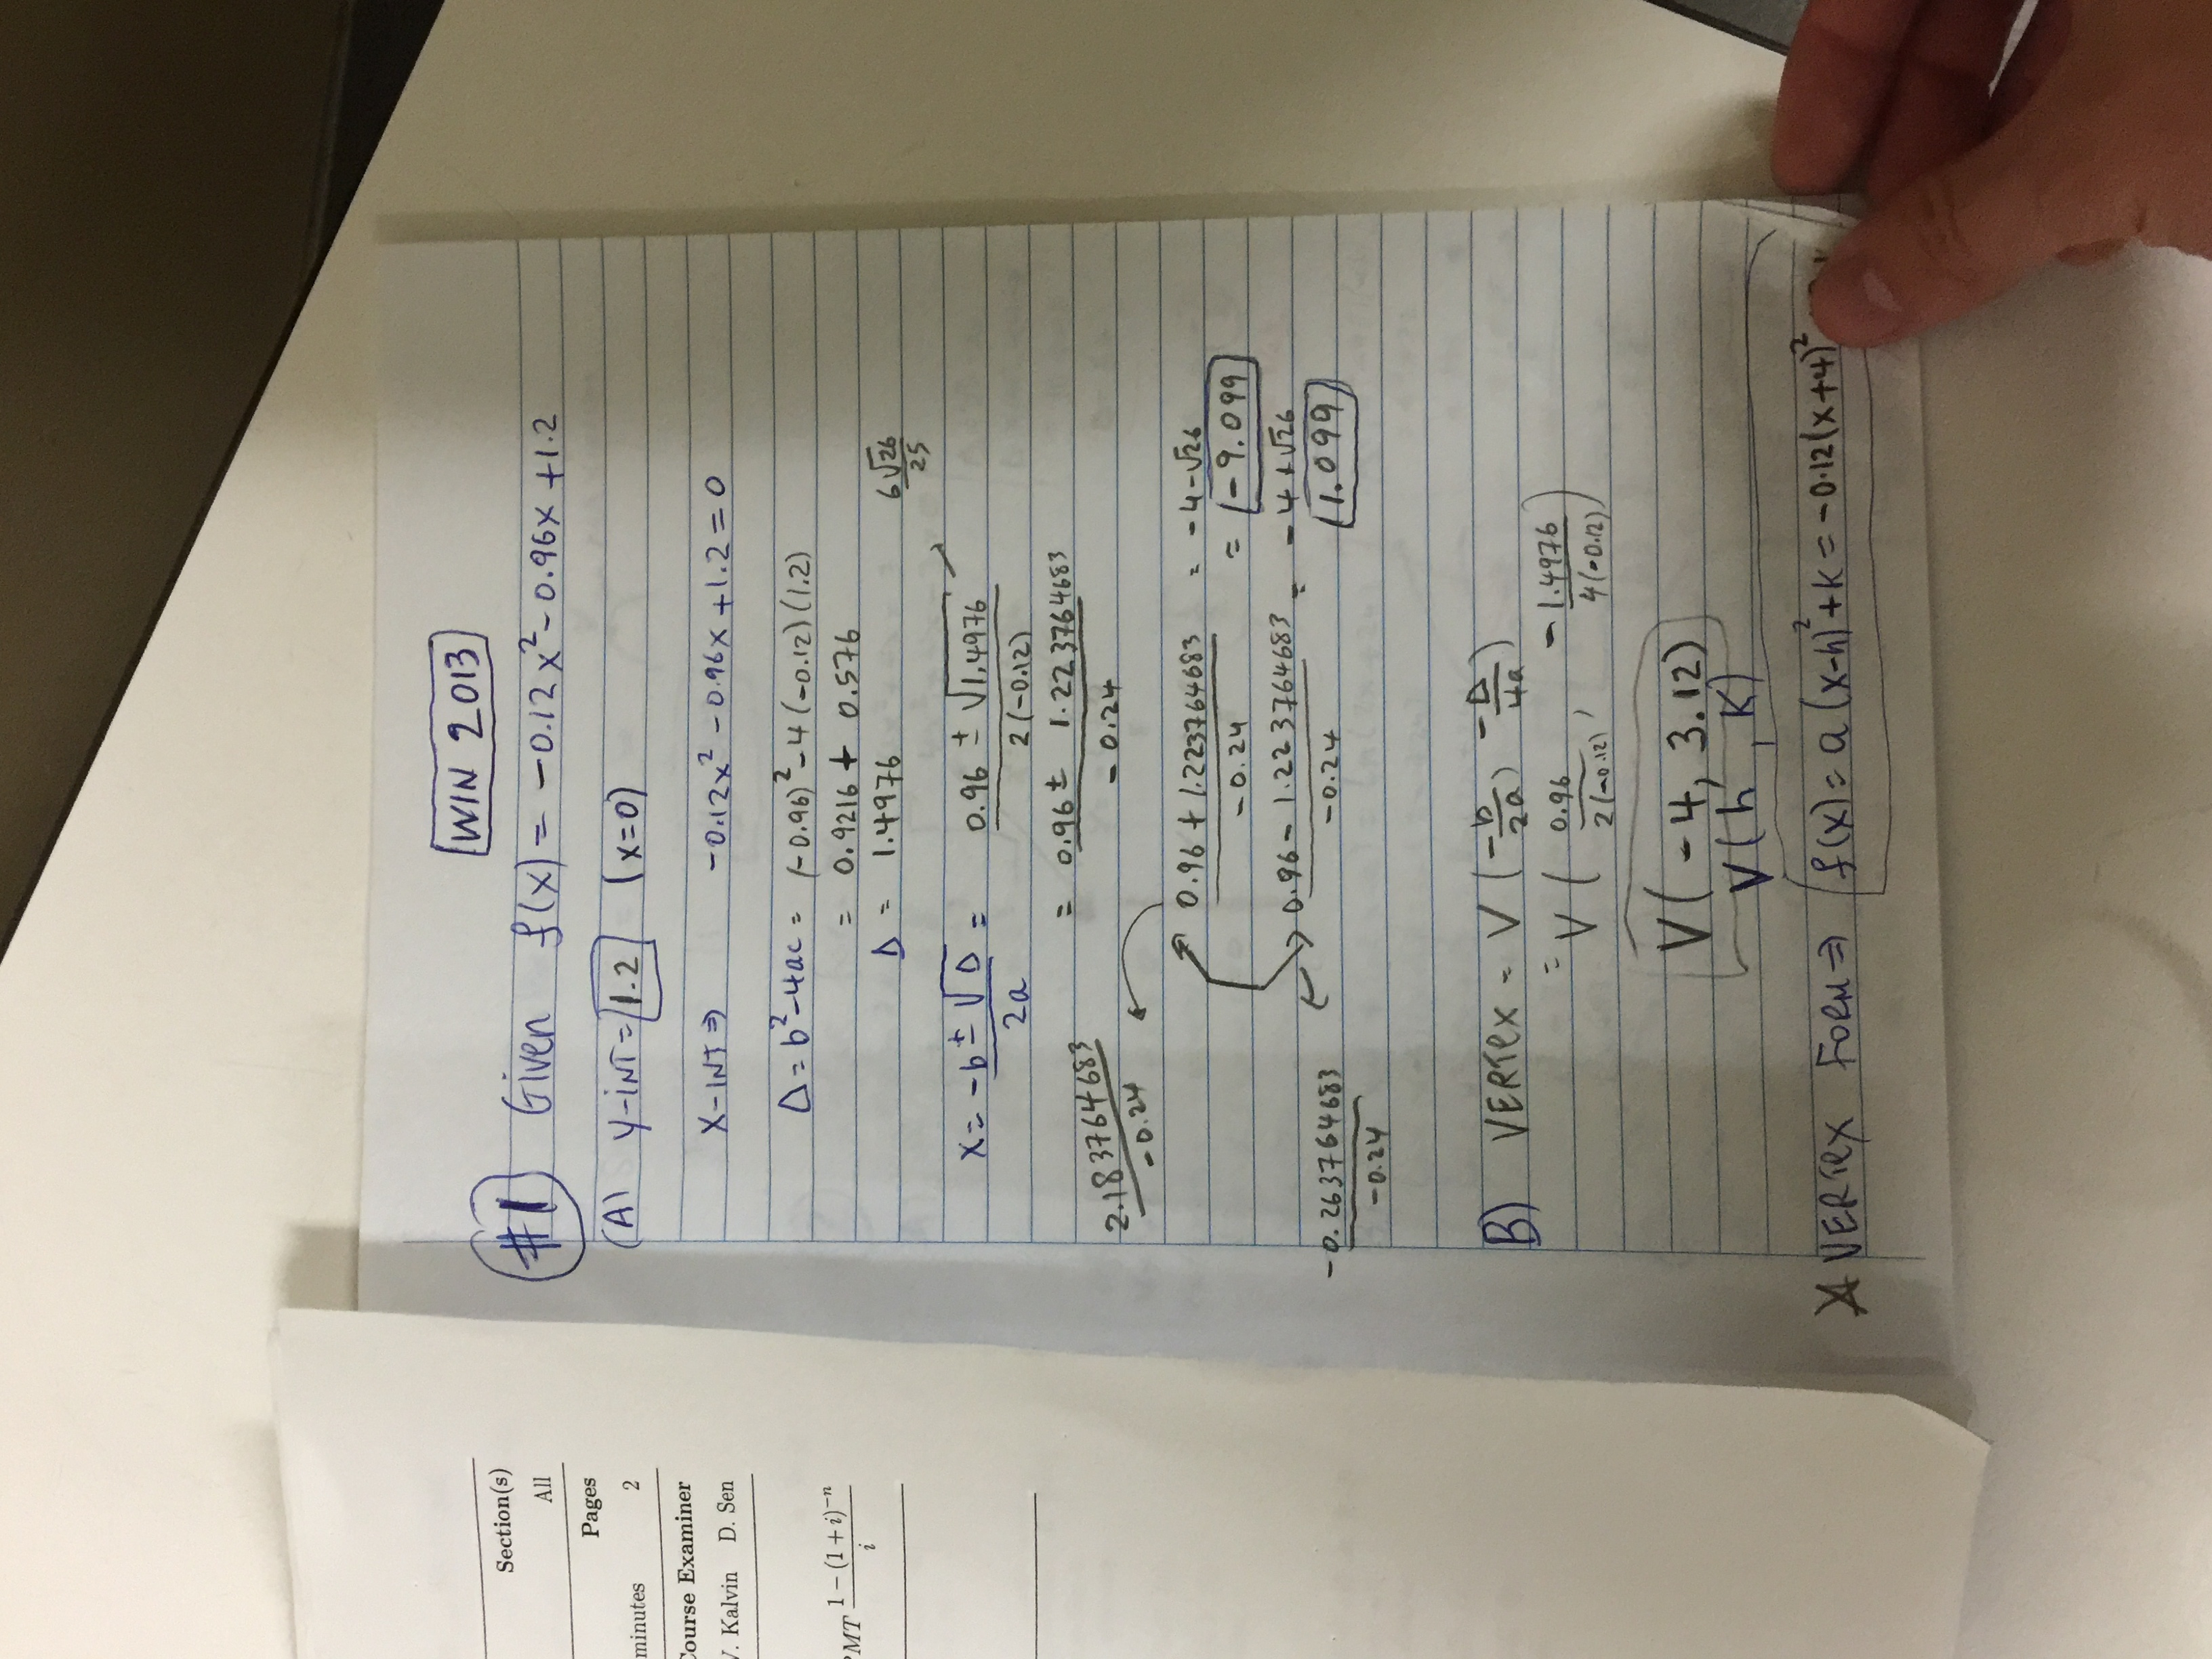 WIN 2013
#1 Given f(x) = -0.12x² - 0.96x + 1.2
(A) y-iNT = 1.2 (x=0)
X-INT ⇒ -0.12x² - 0.96x + 1.2 = 0
Δ = b² - 4ac = (-0.96)² - 4(-0.12)(1.2)
= 0.9216 + 0.576
Δ = 1.4976
6√26/25
x = -b ± √Δ / 2a = 0.96 ± √1.4976 / 2(-0.12)
= 0.96 ± 1.223764683 / -0.24
2.183764683 / -0.24
0.96 + 1.223764683 / -0.24 = -4-√26
= (-9.099)
0.96 - 1.223764683 / -0.24 = -4+√26
(1.099)
-0.263764683 / -0.24
B) VERTEX = V(-b/2a, -Δ/4a)
= V(0.96/2(-0.12), -1.4976/4(-0.12))
V(-4, 3.12)
V(h, K)
VERTEX FORM ⇒ f(x) = a(x-h)² + K = -0.12(x+4)²
Section(s)
All
Pages
minutes 2
Course Examiner
V. Kalvin D. Sen
PMT 1 - (1 + i)⁻ⁿ / i